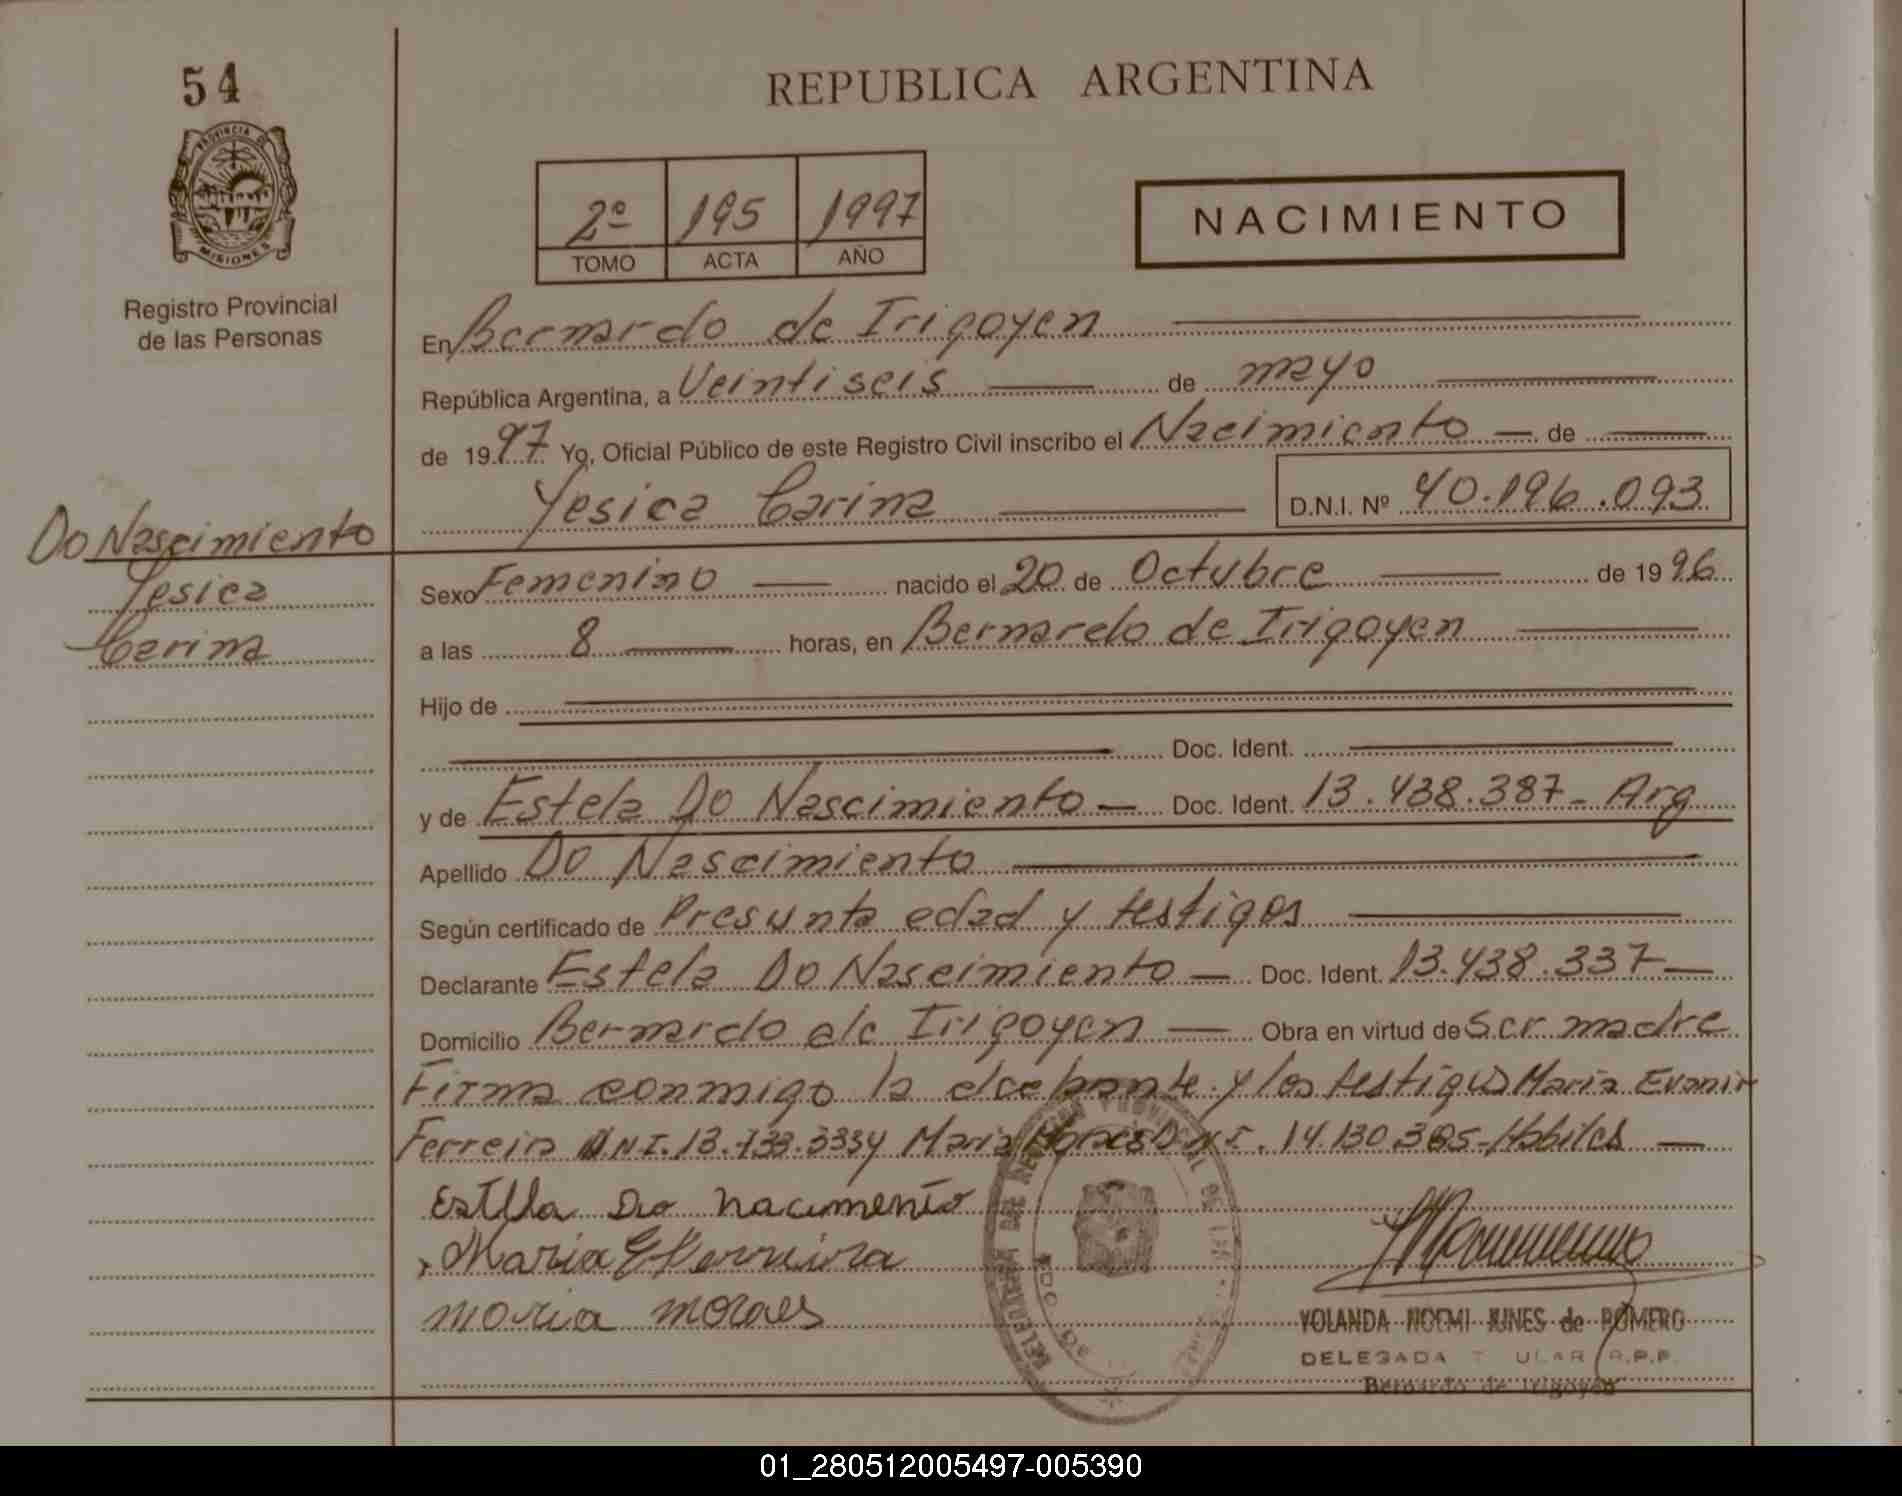 54
REPUBLICA ARGENTINA
PROVINCIA DE
MISIONES
Registro Provincial
de las Personas
2º 195 1997
TOMO ACTA AÑO
NACIMIENTO
En Bernardo de Irigoyen
República Argentina, a Veintiseis de mayo
de 1997 Yo, Oficial Público de este Registro Civil inscribo el Nacimiento de
Yesica Carina D.N.I. Nº 40.196.093
Do Nascimiento
Yesica
Carina
Sexo Femenino nacido el 20 de Octubre de 1996
a las 8 horas, en Bernardo de Irigoyen
Hijo de
Doc. Ident.
y de Estela Do Nascimiento Doc. Ident. 13.438.387 - Arg
Apellido Do Nascimiento
Según certificado de Presunta edad y testigos
Declarante Estela Do Nascimiento Doc. Ident. 13.438.337
Domicilio Bernardo de Irigoyen Obra en virtud de Ser madre
Firma conmigo la y los testigos Maria Evanir
Ferreira D.N.I. 13.733.333y Maria Moraes D.N.I. 14.130.385 - Habiles
Estlla Do nacimento
Maria E Ferreira
maria moraes
YOLANDA NOEMI JUNES de ROMERO
DELEGADA R.P.P.
Bernardo de Irigoyen
01_280512005497-005390